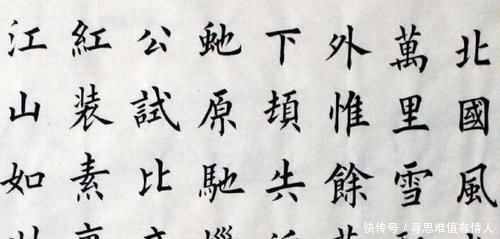 北國風
萬里雪
外惟餘
下頓失
虵原馳
公試比
紅装素
江山如
快传号/寻思难值有情人